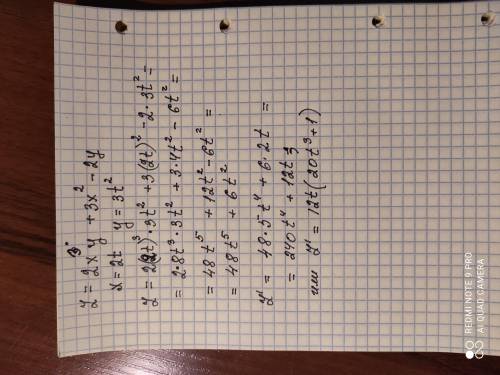 y = 2x³y + 3x² − 2y
x = 2t   y = 3t²
y = 2(2t)³·3t² + 3(2t)² − 2·3t² =
= 2·8t³·3t² + 3·4t² − 6t² =
= 48t⁵ + 12t² − 6t² =
= 48t⁵ + 6t²
y' = 48·5t⁴ + 6·2t =
= 240t⁴ + 12t
или y' = 12t(20t³+1)
REDMI NOTE 9 PRO
AI QUAD CAMERA